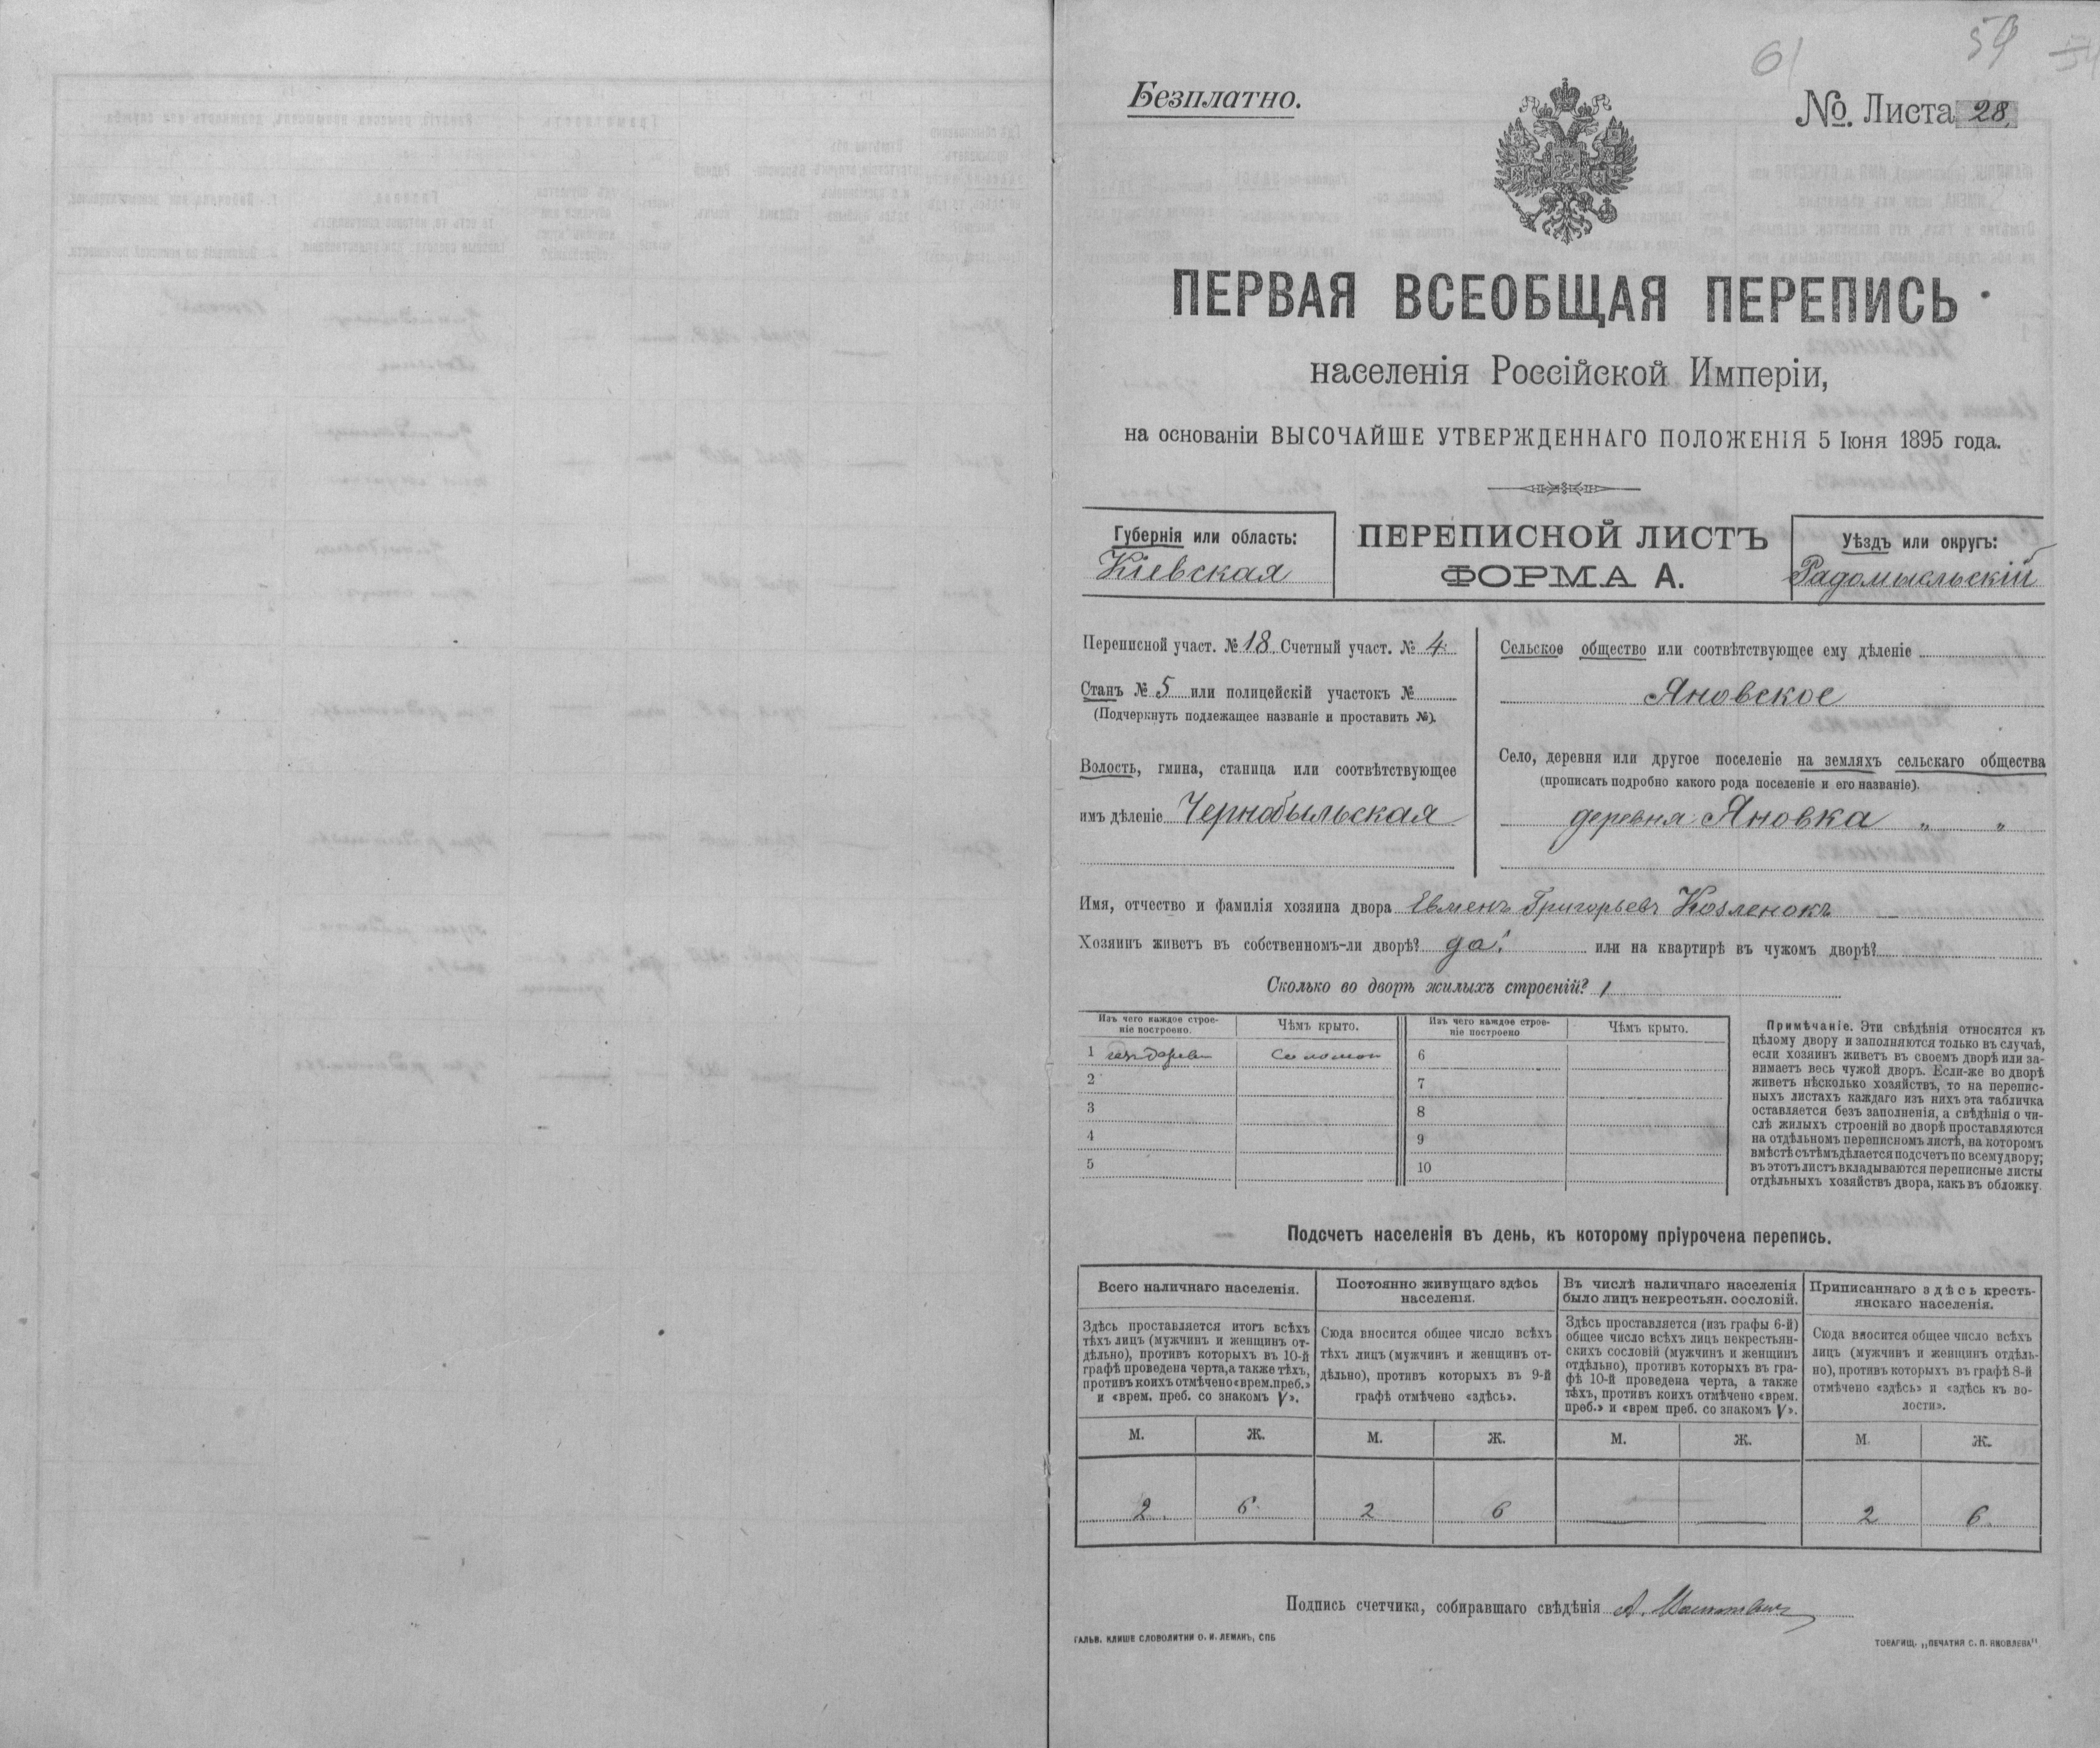 61
59
Безплатно.
№. Листа 28.
ПЕРВАЯ ВСЕОБЩАЯ ПЕРЕПИСЬ
населенія Россійской Имперіи,
на основаніи ВЫСОЧАЙШЕ УТВЕРЖДЕННАГО ПОЛОЖЕНІЯ 5 Іюня 1895 года.
Губернія или область:
Кіевская
ПЕРЕПИСНОЙ ЛИСТЪ
ФОРМА А.
Уѣздъ или округъ:
Радомысльскій
Переписной участ. № 18 Счетный участ. № 4.
Станъ № 5 или полицейскій участокъ №
(Подчеркнуть подлежащее названіе и проставить №).
Волость, гмина, станица или соотвѣтствующее
имъ дѣленіе Чернобыльская
Сельское общество или соотвѣтствующее ему дѣленіе
Яновское
Село, деревня или другое поселеніе на земляхъ сельскаго общества
(прописать подробно какого рода поселеніе и его названіе).
деревня Яновка „ „
Имя, отчество и фамилія хозяина двора Евменъ Григорьевъ Козленокъ
Хозяинъ живетъ въ собственномъ-ли дворѣ? да. или на квартирѣ въ чужомъ дворѣ?
Сколько во дворѣ жилыхъ строеній? 1
Изъ чего каждое строе-
ніе построено.
Чѣмъ крыто.
Изъ чего каждое строе-
ніе построено
Чѣмъ крыто.
1 изъ дерева Соломой 6
2 7
3 8
4 9
5 10
Примѣчаніе. Эти свѣдѣнія относятся къ
цѣлому двору и заполняются только въ случаѣ,
если хозяинъ живетъ въ своемъ дворѣ или за-
нимаетъ весь чужой дворъ. Если-же во дворѣ
живетъ нѣсколько хозяйствъ, то на перепис-
ныхъ листахъ каждаго изъ нихъ эта табличка
оставляется безъ заполненія, а свѣдѣнія о чи-
слѣ жилыхъ строеній во дворѣ проставляются
на отдѣльномъ переписномъ листѣ, на которомъ
вмѣстѣ съ тѣмъ дѣлается подсчетъ по всему двору;
въ этотъ листъ вкладываются переписные листы
отдѣльныхъ хозяйствъ двора, какъ въ обложку.
Подсчетъ населенія въ день, къ которому пріурочена перепись.
Всего наличнаго населенія.
Постоянно живущаго здѣсь
населенія.
Въ числѣ наличнаго населенія
было лицъ некрестьян. сословій.
Приписаннаго здѣсь кресть-
янскаго населенія.
Здѣсь проставляется итогъ всѣхъ
тѣхъ лицъ (мужчинъ и женщинъ от-
дѣльно), противъ которыхъ въ 10-й
графѣ проведена черта, а также тѣхъ,
противъ коихъ отмѣчено «врем. преб.»
и «врем. преб. со знакомъ V».
Сюда вносится общее число всѣхъ
тѣхъ лицъ (мужчинъ и женщинъ от-
дѣльно), противъ которыхъ въ 9-й
графѣ отмѣчено «здѣсь».
Здѣсь проставляется (изъ графы 6-й)
общее число всѣхъ лицъ некрестьян-
скихъ сословій (мужчинъ и женщинъ
отдѣльно), противъ которыхъ въ гра-
фѣ 10-й проведена черта, а также
тѣхъ, противъ коихъ отмѣчено «врем.
преб.» и «врем преб. со знакомъ V».
Сюда вносится общее число всѣхъ
лицъ (мужчинъ и женщинъ отдѣль-
но), противъ которыхъ въ графѣ 8-й
отмѣчено «здѣсь» и «здѣсь къ во-
лости».
М. Ж. М. Ж. М. Ж. М. Ж.
2. 6. 2 6 — — 2 6.
Подпись счетчика, собиравшаго свѣдѣнія А.
ГАЛЬВ. КЛИШЕ СЛОВОЛИТНИ О. И. ЛЕМАНЪ, СПБ
ТОВАРИЩ. „ПЕЧАТНЯ С. П. ЯКОВЛЕВА"